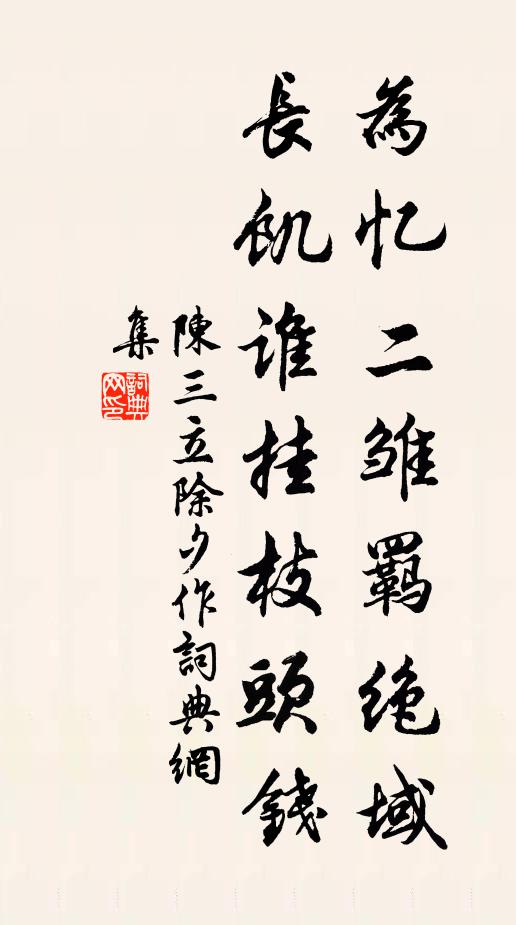 為忆二雏羁絶域
長飢谁挂枝頭錢
陳三立除夕作詞典網
集
詞典网印